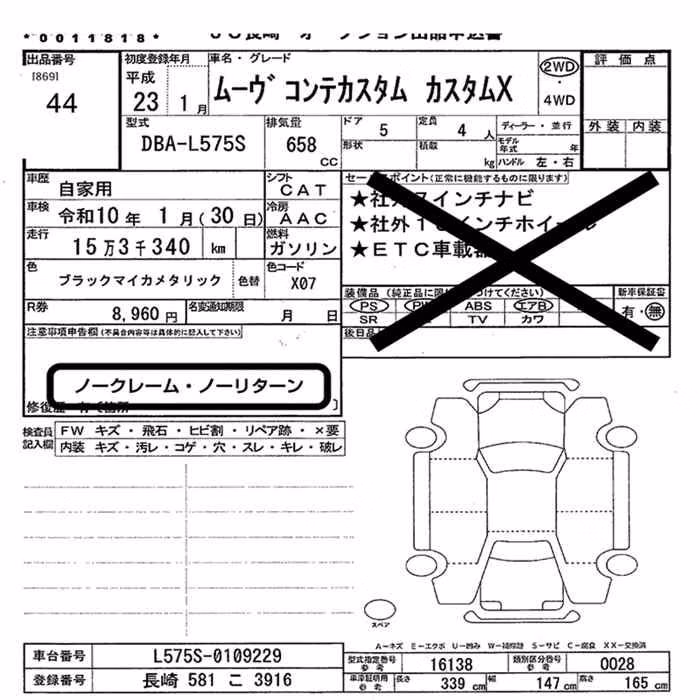 *0011818*
出品番号
[869]
44
初度登録年月
平成
23 1月
車名・グレード
ムーヴ コンテカスタム カスタムX
2WD
・
4WD
評価点
外装 内装
型式
DBA-L575S
排気量
658
cc
ドア
5
定員
4人
ディーラー・並行
形状
積載
kg
モデル年式
年
ハンドル 左・右
車歴
自家用
シフト
CAT
車検
令和10年 1月(30日)
冷房
AAC
走行
15万3千340 km
燃料
ガソリン
色
ブラックマイカメタリック
色替
色コード
X07
R券
8,960円
名変通知期限
月 日
セールスポイント(正常に機能するものに限ります)
★社外7インチナビ
★社外1 インチホイール
★ETC車載器
装備品(純正品に限 つけてください)
PS PW ABS エアB
SR TV カワ
新車保証書
有・無
後日品
注意事項申告欄(不具合内容等は具体的に記入して下さい)
ノークレーム・ノーリターン
修復歴 有 箇所 ]
検査員
記入欄
FW キズ・飛石・ヒビ割・リペア跡・×要
内装 キズ・汚レ・コゲ・穴・スレ・キレ・破レ
スペア
A-キズ E-エクボ U-凹み W-補修跡 S-サビ C-腐食 XX-交換済
車台番号
L575S-0109229
型式指定番号
参考
16138
類別区分番号
参考
0028
登録番号
長崎 581 こ 3916
車庫証明用
参考
長さ
339cm
幅
147cm
高さ
165cm